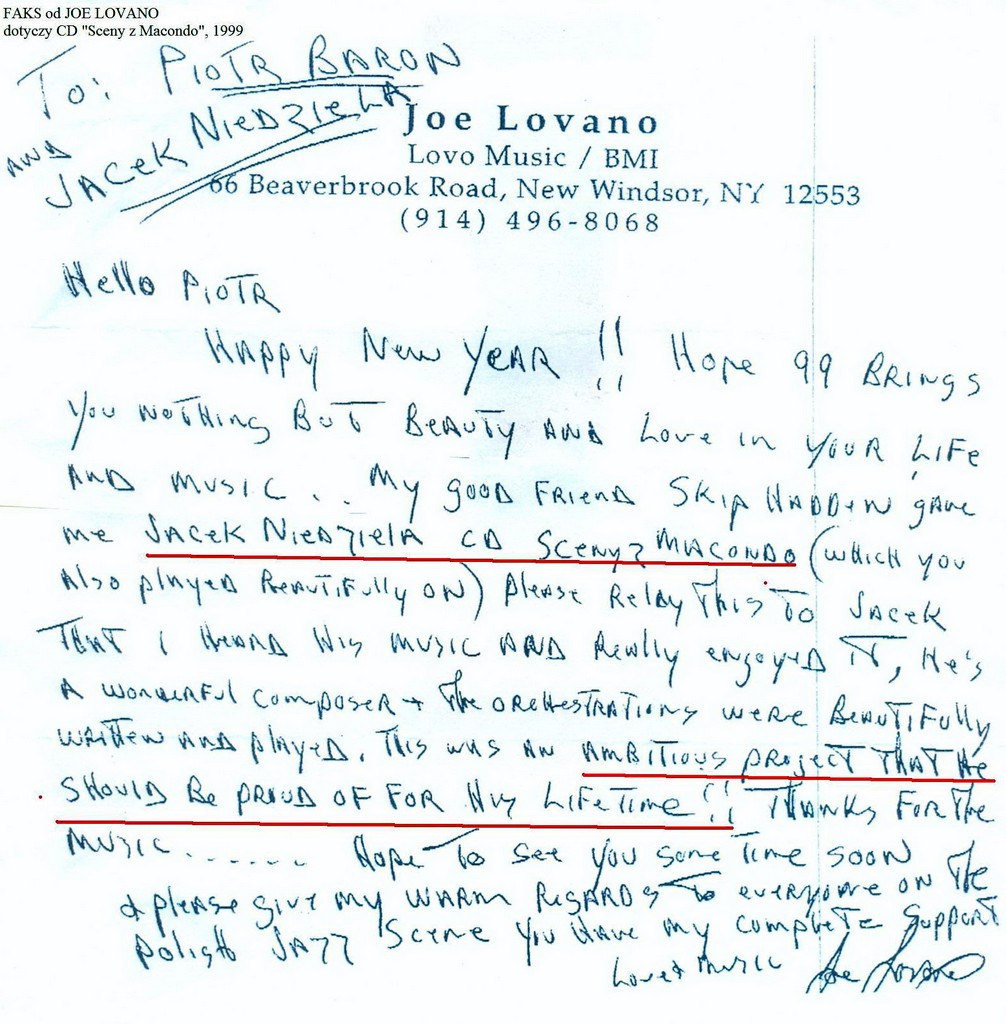 FAKS od JOE LOVANO
dotyczy CD "Sceny z Macondo", 1999
To: PIOTR BARON
AND
JACEK NIEDZIELA
Joe Lovano
Lovo Music / BMI
66 Beaverbrook Road, New Windsor, NY 12553
(914) 496-8068
Hello PIOTR
HAPPY New YEAR !! Hope 99 BRINGS
You NOTHING BUT BEAUTY AND Love in YOUR LIFE
AND MUSIC... My good FRIEND SKIP HADDEN gave
me JACEK NIEDZIELA CD SCENY Z MACONDO (which you
Also played BEAUTIFully ON) please Relay This To JACEK
THAT I HEARD His MUSIC AND Really enjoyed IT, He's
A WONDERFUL COMPOSER + The ORCHESTRATIONS WERE BEAUTIFully
WRITTEN AND played. This WAS AN AMBITIOUS PROJECT THAT He
SHOULD Be PROUD OF FOR His LIFETIME!! THANKS FOR THE
MUSIC....... Hope To see you some Time soon
+ please give my WARM REGARDS To everyone on The
Polish JAZZ Scene You Have my complete Support
Love + Music Joe Lovano